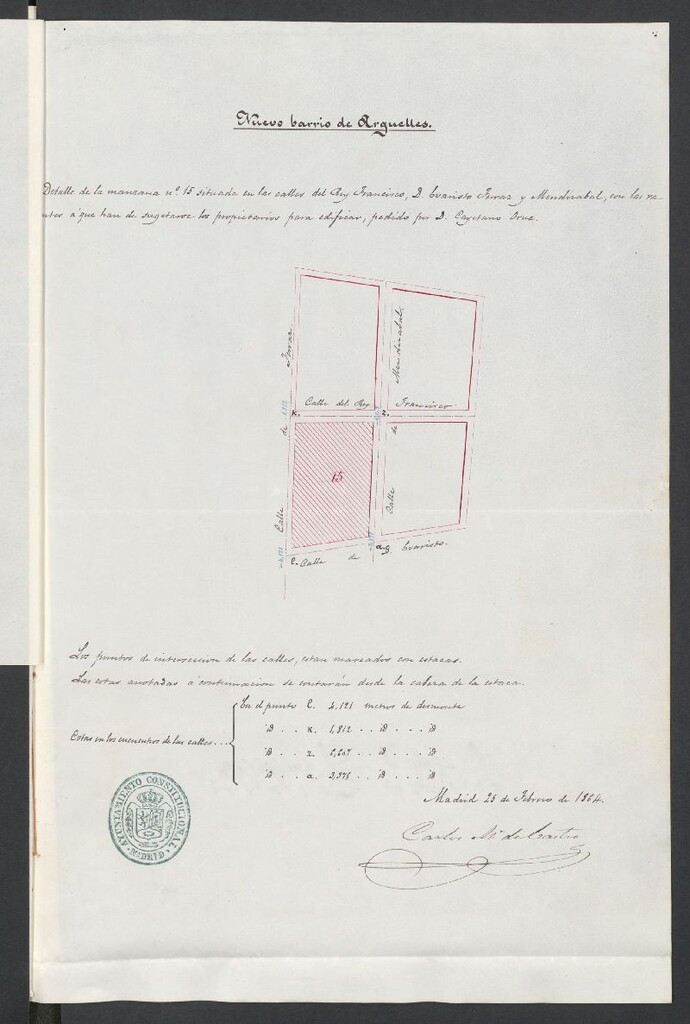 Nuevo barrio de Arguelles.
Detalle de la manzana nº. 15 situada en las calles del Rey Francisco, D. Evaristo Ferraz y Mendizabal, con las ra-
antes á que han de sugetarse los propietarios para edificar, pedido por D. Cayetano
Ferraz
de
Calle
Mendizabal
de
Calle
Calle del Rey Francisco
15
Calle de Evaristo.
Los puntos de interseccion de las calles, estan marcados con estacas.
Las cotas anotadas á continuacion se contarán desde la cabeza de la estaca.
Cotas en los encuentros de las calles...
En el punto C. 4,121 metros de desmonte
id . . x. 1,812 . . . id . . . . id
id . . z. . . . id . . . . id
id . . a. . . . id . . . . id
Madrid 25 de Febrero de 1864.
Carlos Mª de Castro
AYUNTAMIENTO CONSTITUCIONAL
MADRID